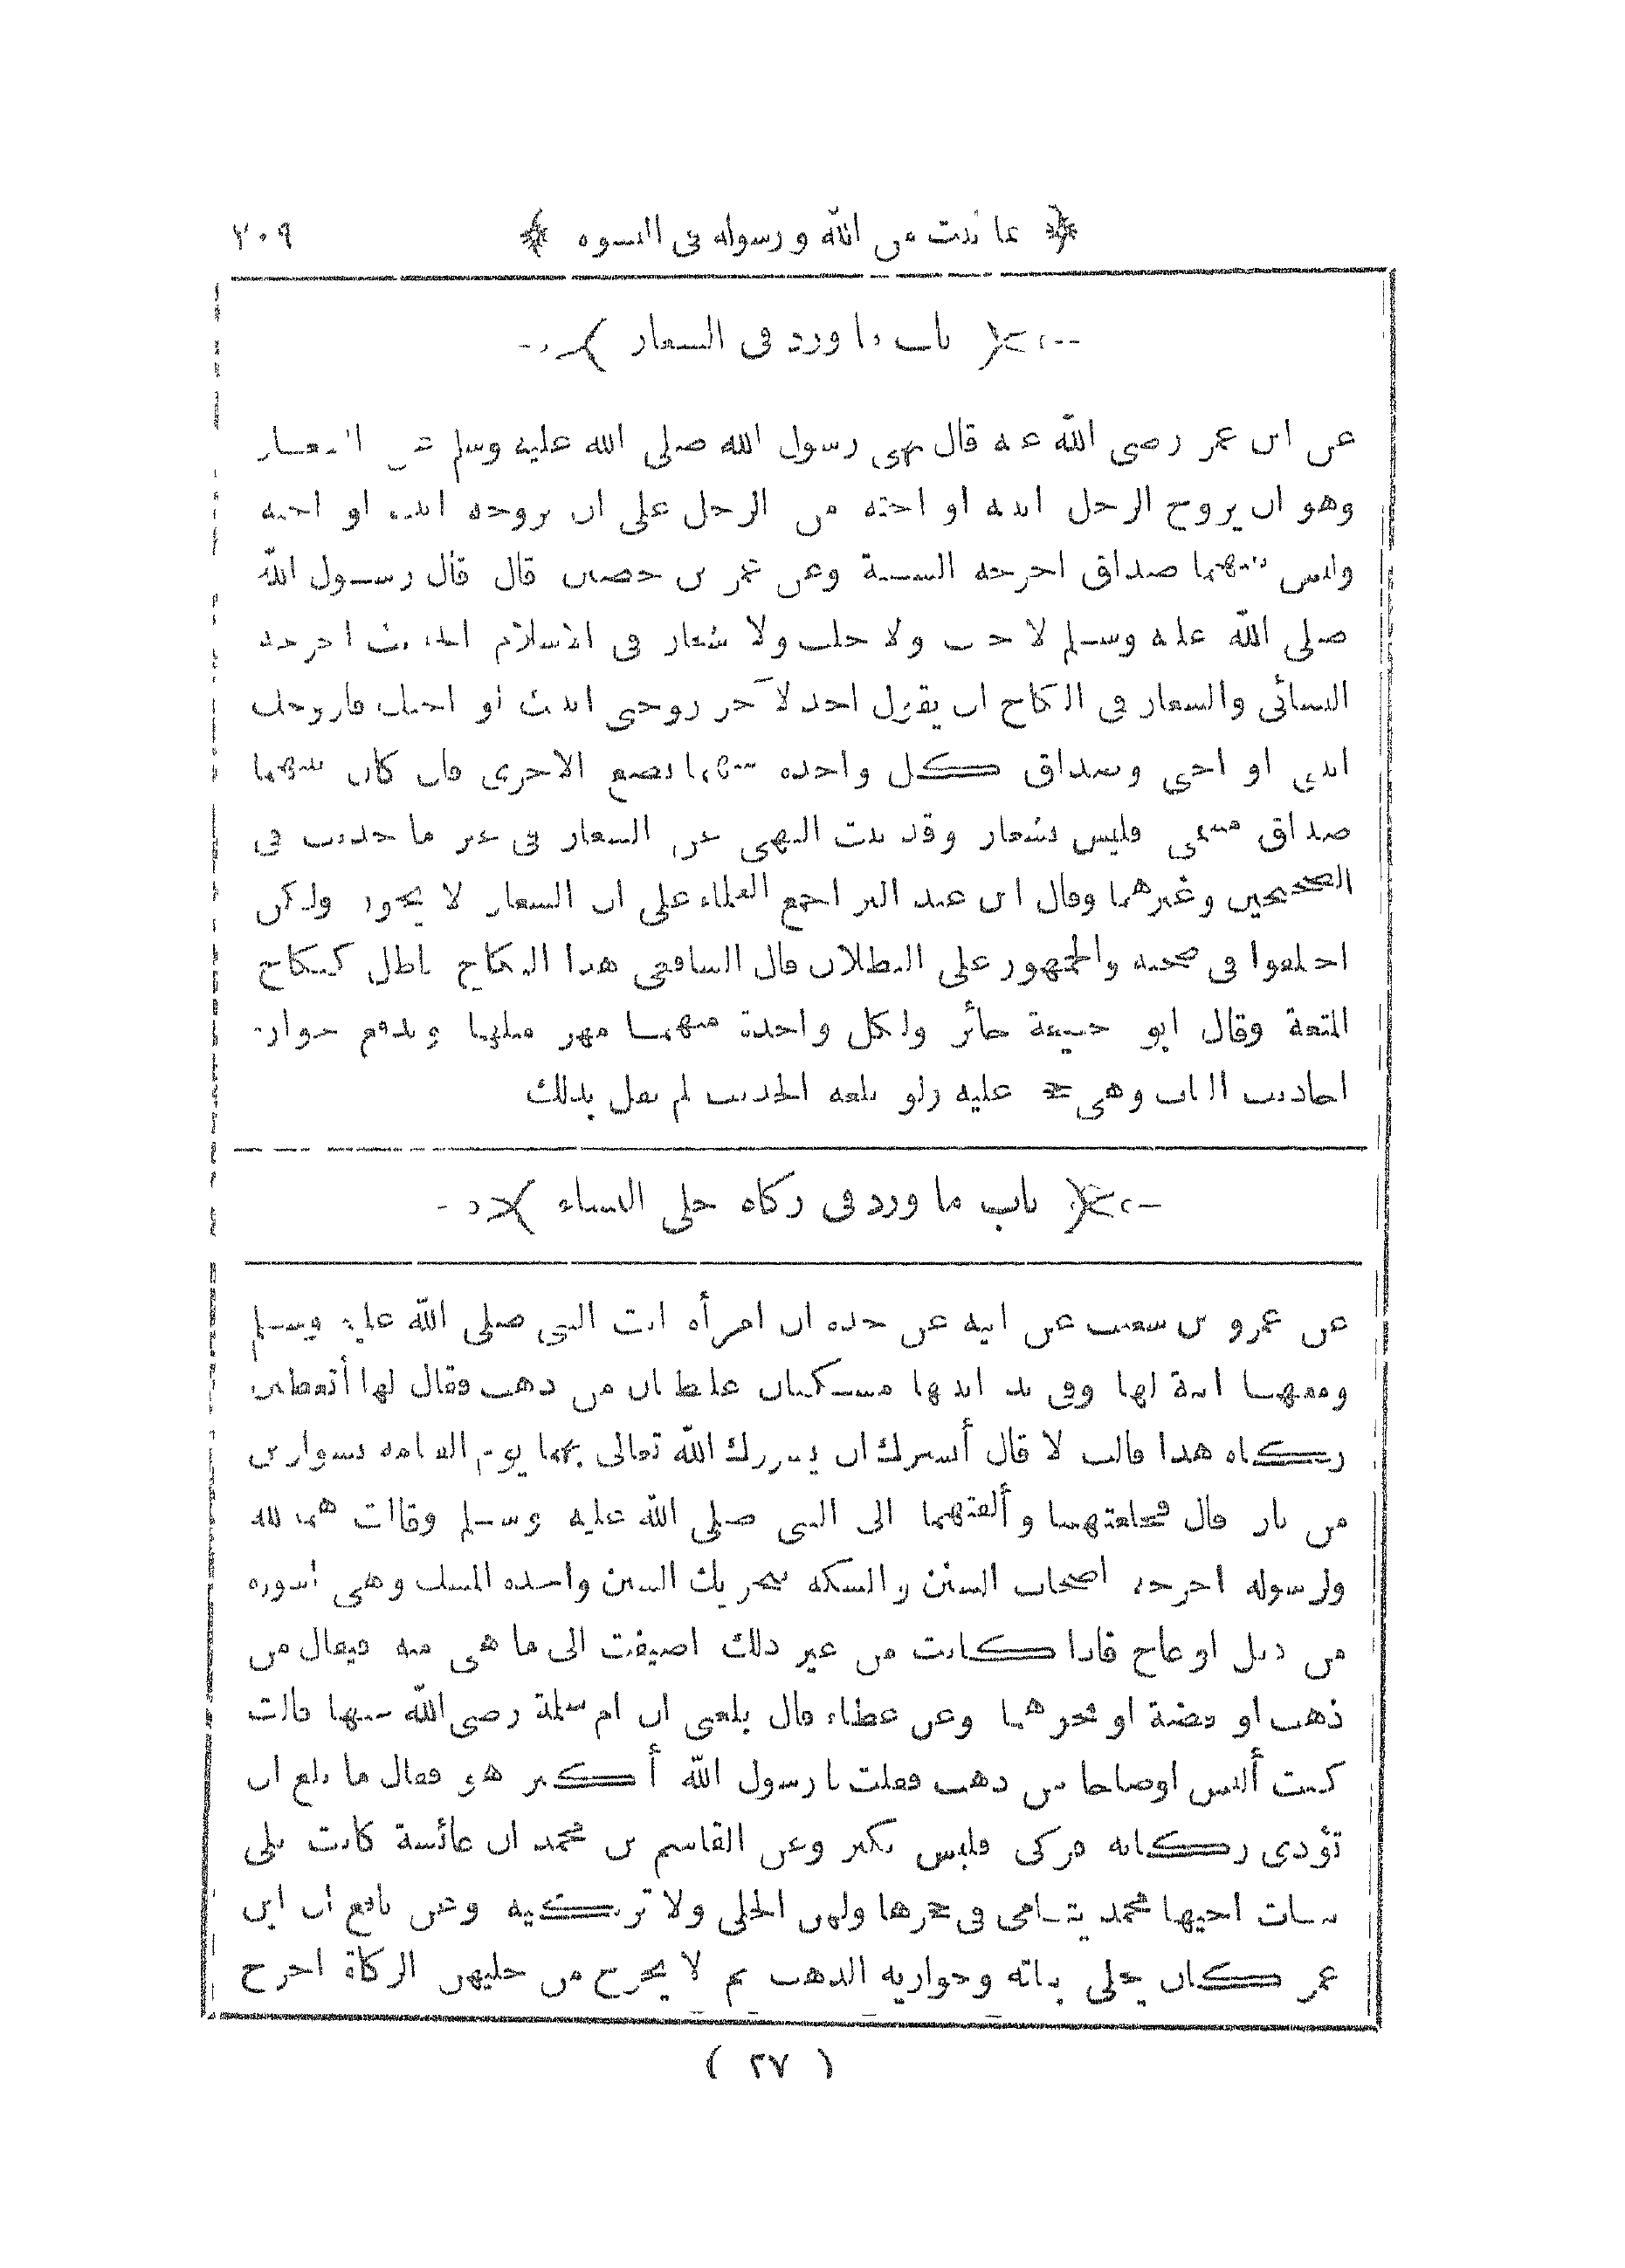 ﴿ بما ثبت من الله ورسوله فى النسوه ﴾ ٢٠٩
باب ما ورد فى الشغار
عن ابن عمر رضى الله عنه قال نهى رسول الله صلى الله عليه وسلم عن الشغار
وهو ان يزوج الرجل ابنته او اخته من الرجل على ان يزوجه ابنته او اخته
وليس بينهما صداق اخرجه الستة وعن عمر بن حصين قال قال رسول الله
صلى الله عليه وسلم لا جنب ولا جلب ولا شغار فى الاسلام الحديث اخرجه
النسائى والشغار فى النكاح ان يقول احد لآخر زوجنى ابنتك او اختك فازوجك
ابنتى او اختى وصداق كل واحدة منهما بضع الاخرى فان كان بينهما
صداق مسمى فليس بشغار وقد ثبت النهى عن الشغار فى غير ما حديث فى
الصحيحين وغيرهما وقال ابن عبد البر اجمع العلماء على ان الشغار لا يجوز ولكن
اختلفوا فى صحته والجمهور على البطلان قال الشافعى هذا النكاح باطل كنكاح
المتعة وقال ابو حنيفة جائز ولكل واحدة منهما مهر مثلها ويدفع جوازه
احاديث الباب وهى حجة عليه ولو بلغه الحديث لم يقل بذلك
باب ما ورد فى زكاة حلى النساء
عن عمرو بن شعيب عن ابيه عن جده ان امرأة اتت النبى صلى الله عليه وسلم
ومعها ابنة لها وفى يد ابنتها مسكتان غليظتان من ذهب فقال لها أتعطين
زكاة هذا قالت لا قال أيسرك ان يسورك الله تعالى بهما يوم القيامة بسوارين
من نار قال فخلعتهما وألقتهما الى النبى صلى الله عليه وسلم وقالت هما لله
ولرسوله اخرجه اصحاب السنن والمسكة بتحريك السين واحدة المسك وهى اسورة
من ذبل او عاج فاذا كانت من غير ذلك اضيفت الى ما هى منه فيقال من
ذهب او فضة او نحوهما وعن عطاء قال بلغنى ان ام سلمة رضى الله عنها قالت
كنت ألبس اوضاحا من ذهب فقلت يا رسول الله أكنز هو فقال ما بلغ ان
تؤدى زكاته فزكى فليس بكنز وعن القاسم بن محمد ان عائشة كانت تلى
بنات اخيها محمد يتامى فى حجرها ولهن الحلى ولا تزكيه وعن نافع ان ابن
عمر كان يحلى بناته وجواريه الذهب ثم لا يخرج من حليهن الزكاة اخرج
( ٢٧ )